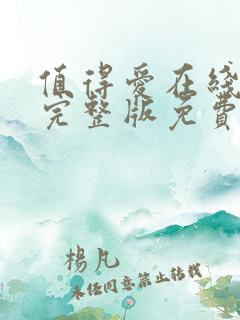 值得爱在綫
完整版免費
楊凡
未经同意禁止转载